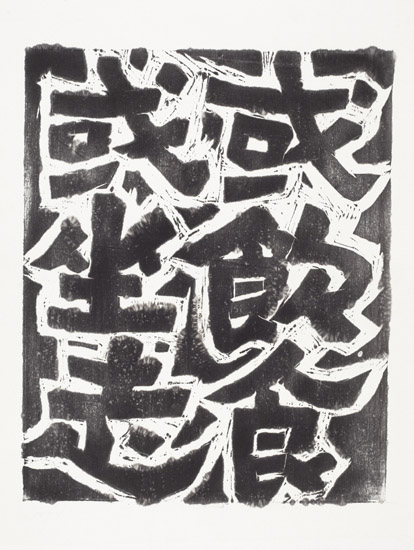 或飲食
或坐走